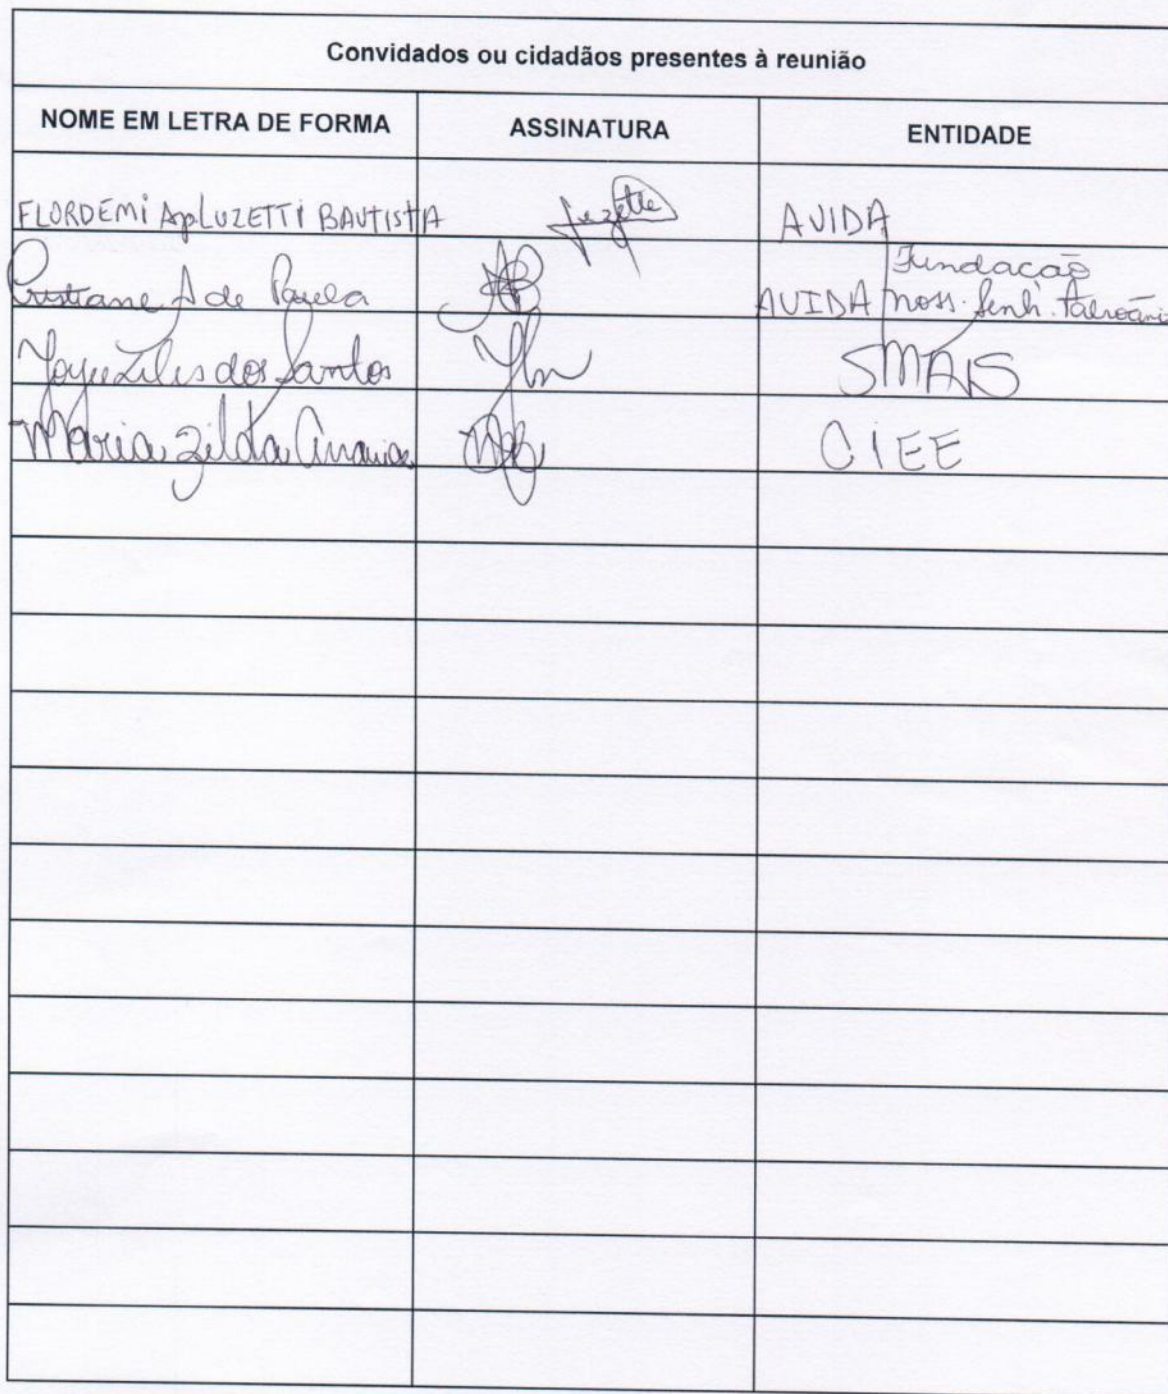 Convidados ou cidadãos presentes à reunião
NOME EM LETRA DE FORMA ASSINATURA ENTIDADE
FLORDEMi Ap LUZETTi BAUTISTA Luzette AVIDA
Cristiane A de Paula AVIDA Fundação
Noss. Senh.
dos Santos SMAIS
Maria Zilda CIEE